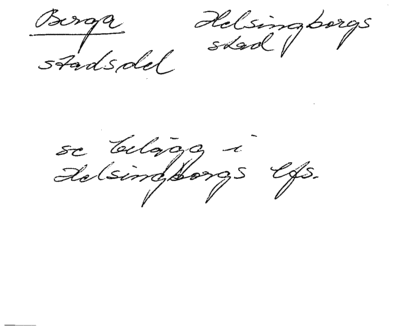 Berga
stadsdel
Helsingborgs
stad
se belägg i
Helsingborgs lfs.